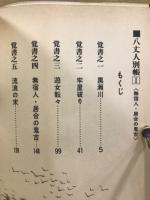 ■八丈人別帳[1]〈無宿人・居合の鬼吉〉
もくじ
覚書之一 黒瀬川 5
覚書之二 牢屋破り 41
覚書之三 遊女転々 99
覚書之四 無宿人・居合の鬼吉 148
覚書之五 流浪の末